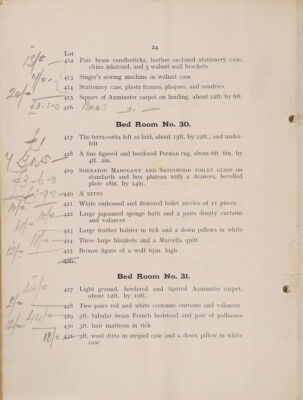 24
Lot
13/= 412 Pair brass candlesticks, leather enclosed stationery case,
china inkstand, and 3 walnut wall brackets
413 Singer's sewing machine in walnut case
414 Stationery case, photo frames, plaques, and sundries
20/= 415 Square of Axminster carpet on landing, about 12ft. by 6ft.
£3-2-0 416
Bed Room No. 30.
417 The terra-cotta felt as laid, about 15ft. by 12ft., and under-
felt
418 A fine figured and bordered Persian rug, about 6ft. 6in. by
4ft. 2in.
419 Sheraton Mahogany and Satinwood toilet glass on
standards and box plateau with 2 drawers, bevelled
plate 18in. by 14in.
£3-6-0
420 A ditto
421 White embossed and flowered toilet service of 11 pieces
422 Large japanned sponge bath and 2 pairs dimity curtains
and valances
423 Large feather bolster in tick and 2 down pillows in white
424 Three large blankets and a Marcella quilt
425 Bronze figure of a wolf 6½in. high
426.
Bed Room No. 31.
427 Light ground, bordered and figured Axminster carpet,
about 12ft. by 10ft.
428 Two pairs red and white cretonne curtains and valances
429 3ft. tubular brass French bedstead and pair of palliasses
430 3ft. hair mattress in tick
18/= 431 3ft. wool ditto in striped case and a down pillow in white
case